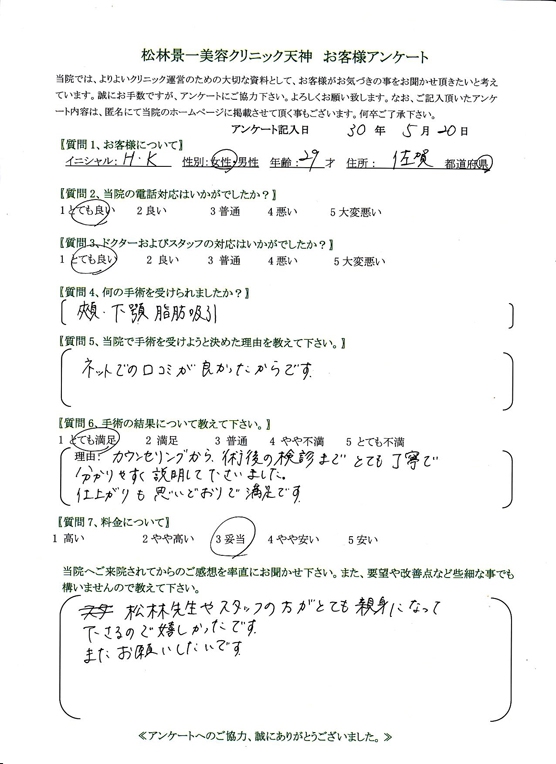 松林景一美容クリニック天神 お客様アンケート
当院では、よりよいクリニック運営のための大切な資料として、お客様がお気づきの事をお聞かせ頂きたいと考え
ています。誠にお手数ですが、アンケートにご協力下さい。よろしくお願い致します。なお、ご記入頂いたアンケ
ート内容は、匿名にて当院のホームページに掲載させて頂く事もございます。何卒ご了承下さい。
アンケート記入日 30 年 5 月 20 日
〖質問1、お客様について〗
イニシャル: H・K 性別:女性・男性 年齢:29才 住所: 佐賀 都道府県
〖質問2、当院の電話対応はいかがでしたか?〗
1 とても良い 2 良い 3 普通 4 悪い 5 大変悪い
〖質問3、ドクターおよびスタッフの対応はいかがでしたか?〗
1 とても良い 2 良い 3 普通 4 悪い 5 大変悪い
〖質問4、何の手術を受けられましたか?〗
頬・下顎 脂肪吸引
〖質問5、当院で手術を受けようと決めた理由を教えて下さい。〗
ネットでの口コミが良かったからです。
〖質問6、手術の結果について教えて下さい。〗
1 とても満足 2 満足 3 普通 4 やや不満 5 とても不満
理由: カウンセリングから、術後の検診までとても丁寧で
分かりやすく説明して下さいました。
仕上がりも思いどおりで満足です。
〖質問7、料金について〗
1 高い 2 やや高い 3 妥当 4 やや安い 5 安い
当院へご来院されてからのご感想を率直にお聞かせ下さい。また、要望や改善点など些細な事でも
構いませんので教えて下さい。
松林先生やスタッフの方がとても親身になって
下さるので嬉しかったです。
またお願いしたいです。
≪アンケートへのご協力、誠にありがとうございました。≫